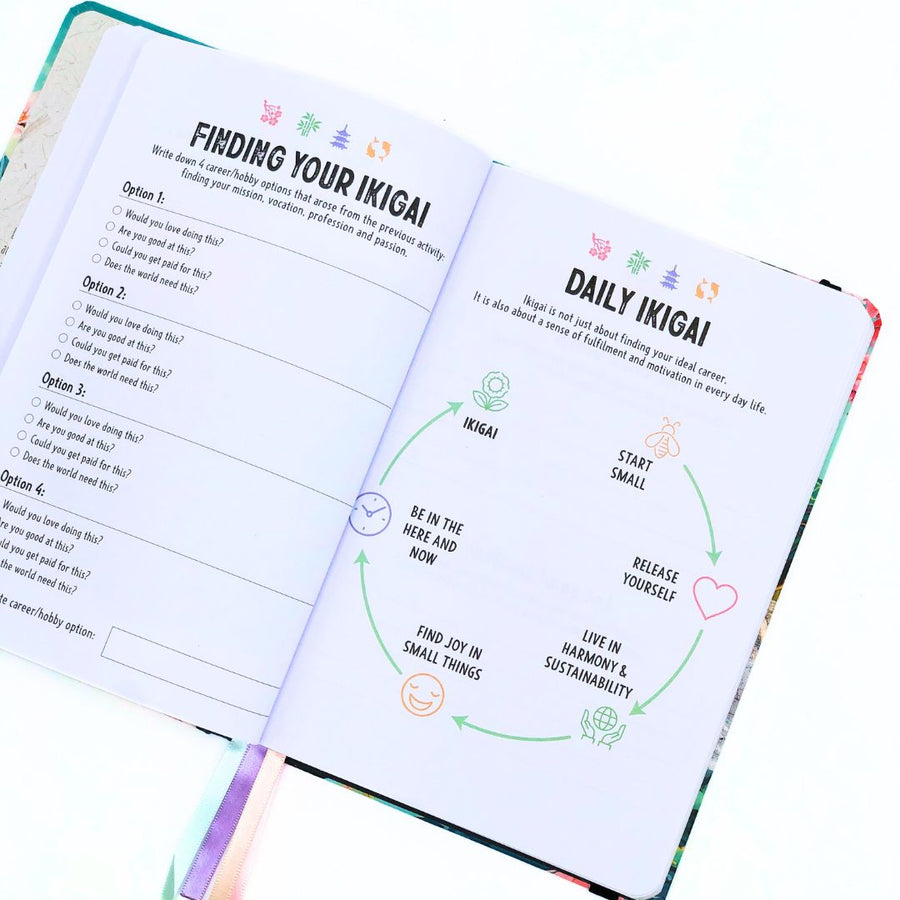 FINDING YOUR IKIGAI
Write down 4 career/hobby options that arose from the previous activity:
finding your mission, vocation, profession and passion.
Option 1:
Would you love doing this?
Are you good at this?
Could you get paid for this?
Does the world need this?
Option 2:
Would you love doing this?
Are you good at this?
Could you get paid for this?
Does the world need this?
Option 3:
Would you love doing this?
Are you good at this?
Could you get paid for this?
Does the world need this?
Option 4:
Would you love doing this?
you good at this?
you get paid for this?
the world need this?
career/hobby option:
DAILY IKIGAI
Ikigai is not just about finding your ideal career.
It is also about a sense of fulfilment and motivation in every day life.
START
SMALL
RELEASE
YOURSELF
LIVE IN
HARMONY &
SUSTAINABILITY
FIND JOY IN
SMALL THINGS
BE IN THE
HERE AND
NOW
IKIGAI